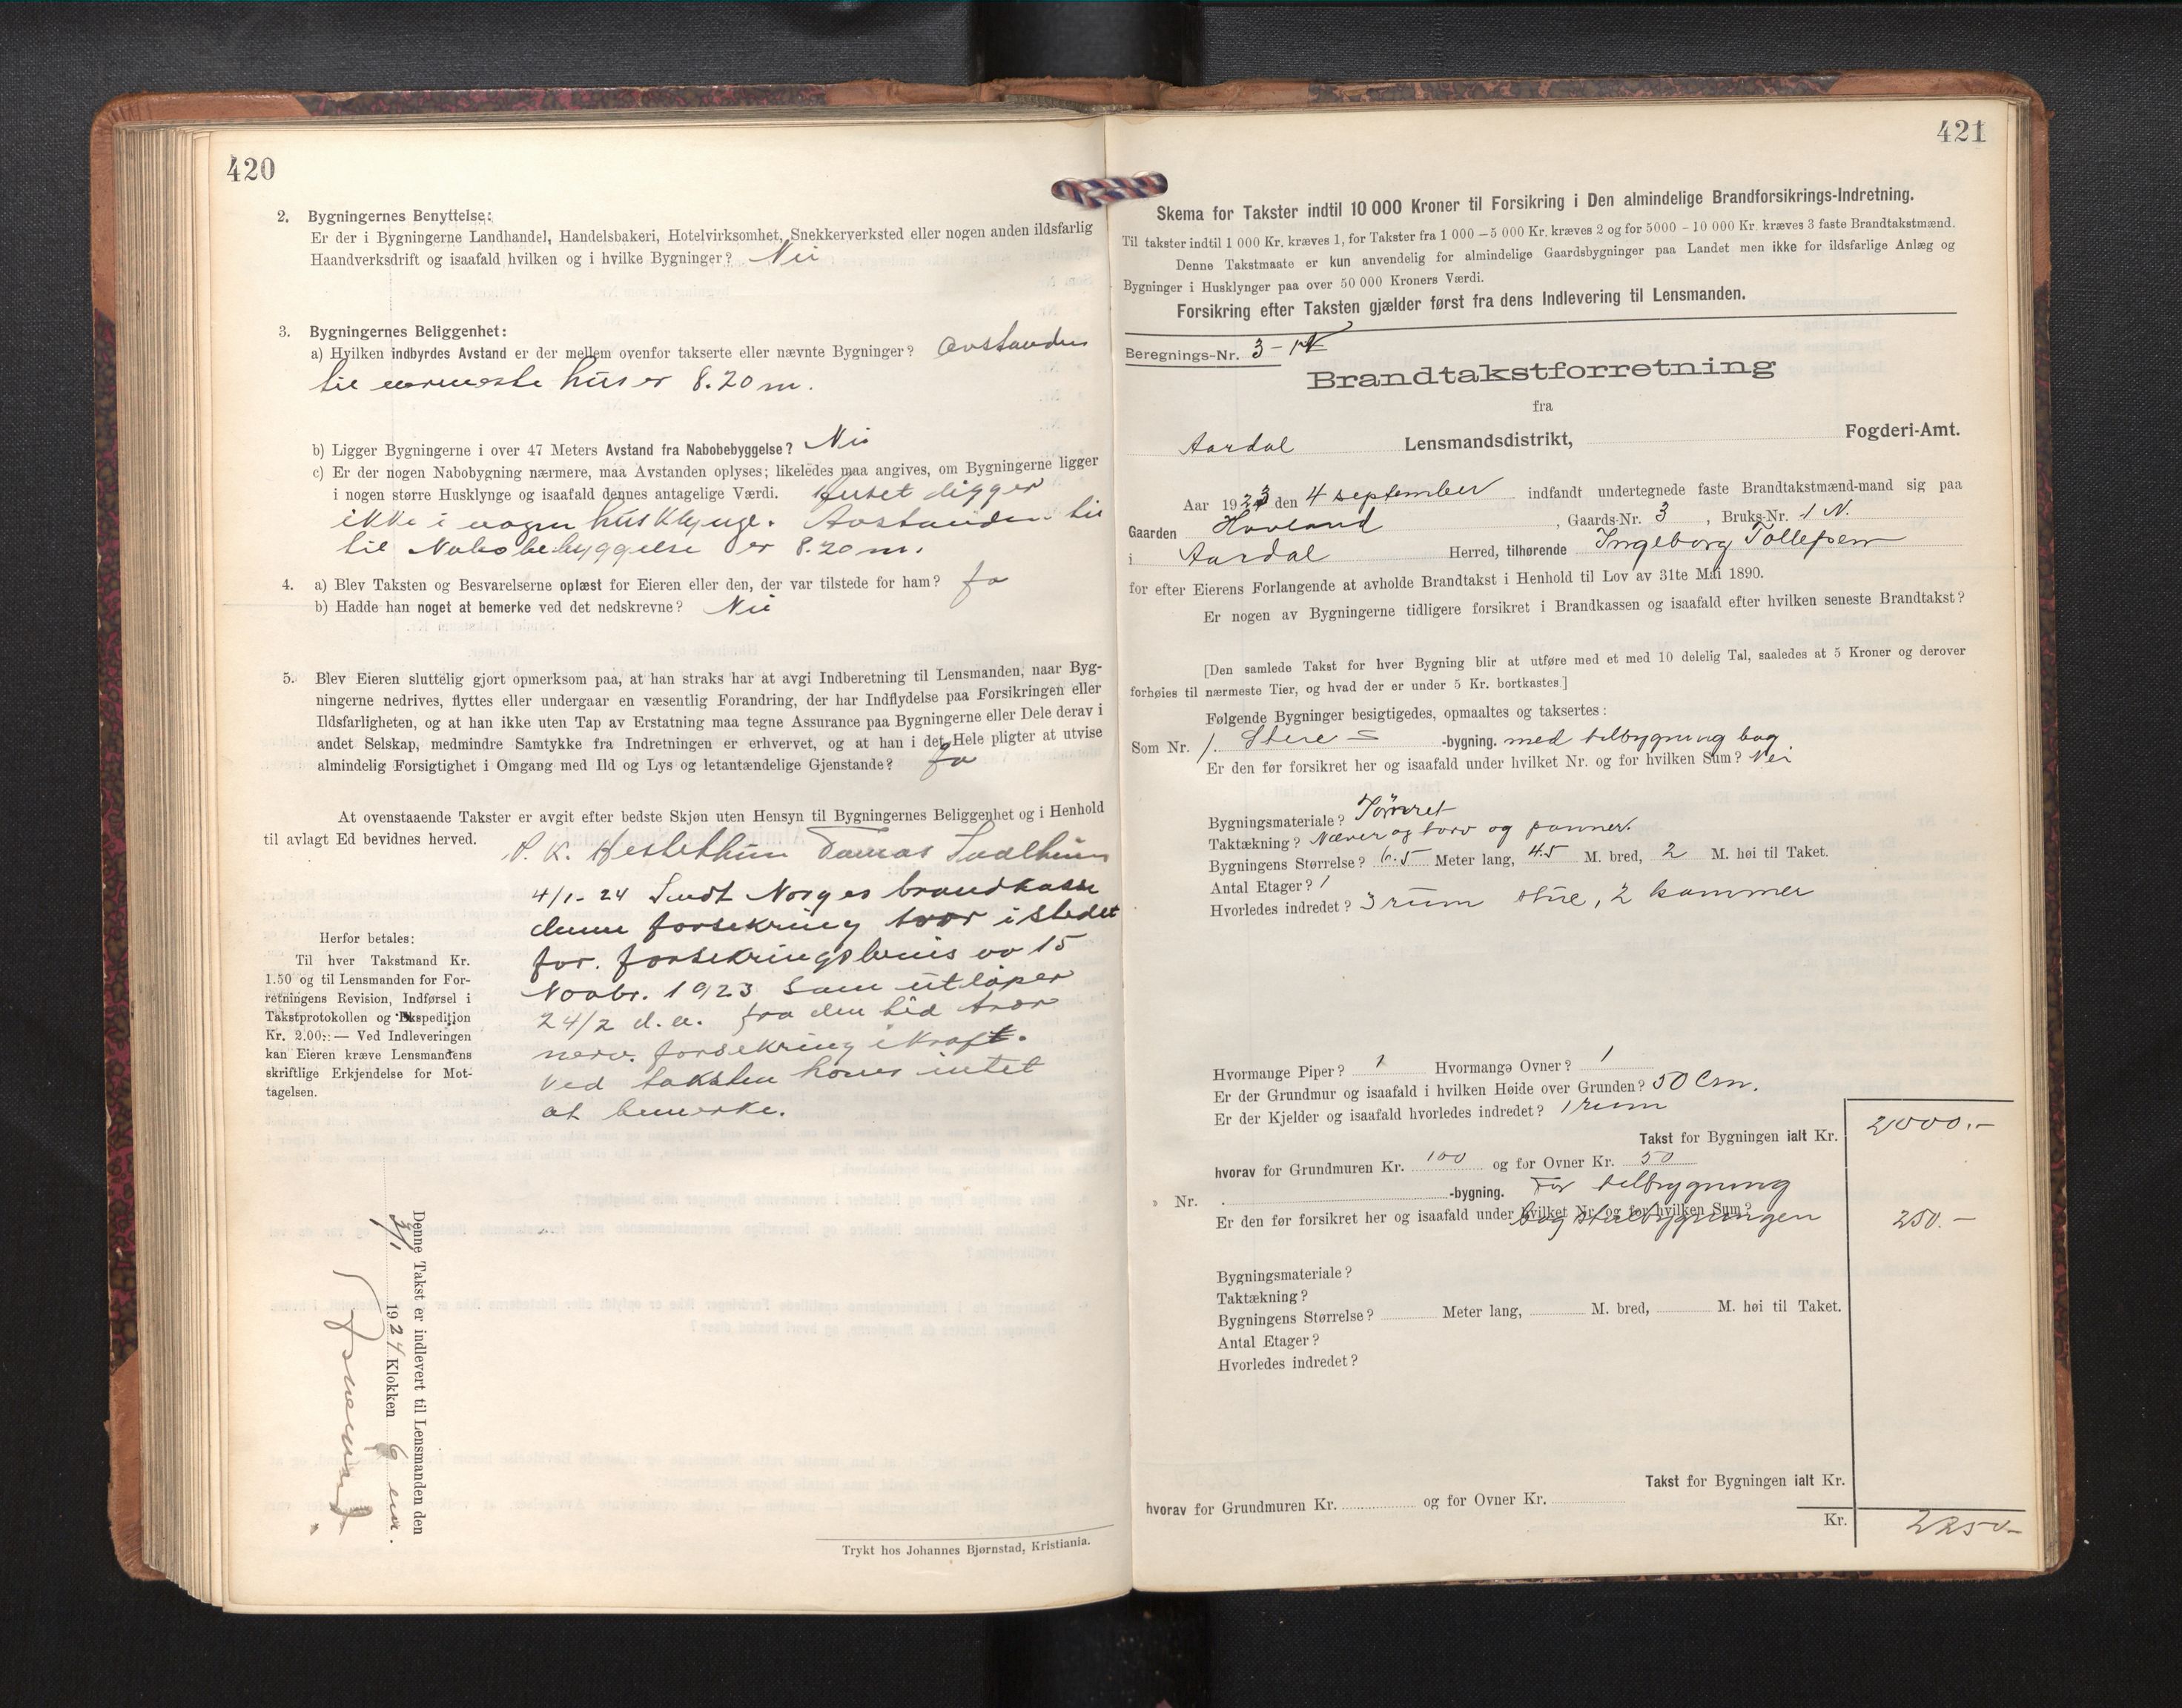 420
2. Bygningernes Benyttelse:
Er der i Bygningerne Landhandel, Handelsbakeri, Hotelvirksomhet, Snekkerverksted eller nogen anden ildsfarlig
Haandverksdrift og isaafald hvilken og i hvilke Bygninger? Nei
3. Bygningernes Beliggenhet:
a) Hvilken indbyrdes Avstand er der mellem ovenfor takserte eller nævnte Bygninger? Avstanden
til nærmeste hus er 8.20 m.
b) Ligger Bygningerne i over 47 Meters Avstand fra Nabobebyggelse? Nei
c) Er der nogen Nabobygning nærmere, maa Avstanden oplyses; likeledes maa angives, om Bygningerne ligger
i nogen større Husklynge og isaafald dennes antagelige Værdi. Huset ligger
ikke i nogen husklynge. Avstanden til
til Nabobebyggelse er 8.20 m.
4. a) Blev Taksten og Besvarelserne oplæst for Eieren eller den, der var tilstede for ham? Ja
b) Hadde han noget at bemerke ved det nedskrevne? Nei
5. Blev Eieren sluttelig gjort opmerksom paa, at han straks har at avgi Indberetning til Lensmanden, naar Byg-
ningerne nedrives, flyttes eller undergaar en væsentlig Forandring, der har Indflydelse paa Forsikringen eller
Ildsfarligheten, og at han ikke uten Tap av Erstatning maa tegne Assurance paa Bygningerne eller Dele derav i
andet Selskap, medmindre Samtykke fra Indretningen er erhvervet, og at han i det Hele pligter at utvise
almindelig Forsigtighet i Omgang med Ild og Lys og letantændelige Gjenstande? Ja
At ovenstaaende Takster er avgit efter bedste Skjøn uten Hensyn til Bygningernes Beliggenhet og i Henhold
til avlagt Ed bevidnes herved.
P. K. Hestethun Tomas
4/1-24 Sendt Norges brandkasse
denne forsekring trær istedet
for forsekringsbevis av 15
Novbr. 1923 som utløper
24/2 d.a. fra den tid trær
nerv. forsekring ikraft.
Ved taksten haves intet
at bemerke.
Herfor betales:
Til hver Takstmand Kr.
1.50 og til Lensmanden for For-
retningens Revision, Indførsel i
Takstprotokollen og Ekspedition
Kr. 2.00: — Ved Indleveringen
kan Eieren kræve Lensmandens
skriftlige Erkjendelse for Mot-
tagelsen.
Denne Takst er indlevert til Lensmanden den
1924 Klokken 6 em.
Trykt hos Johannes Bjørnstad, Kristiania.
421
Skema for Takster indtil 10 000 Kroner til Forsikring i Den almindelige Brandforsikrings-Indretning.
Til takster indtil 1 000 Kr. kræves 1, for Takster fra 1 000 – 5 000 Kr. kræves 2 og for 5000 – 10 000 Kr. kræves 3 faste Brandtakstmænd.
Denne Takstmaate er kun anvendelig for almindelige Gaardsbygninger paa Landet men ikke for ildsfarlige Anlæg og
Bygninger i Husklynger paa over 50 000 Kroners Værdi.
Forsikring efter Taksten gjælder først fra dens Indlevering til Lensmanden.
Beregnings-Nr. 3 - 1 N
Brandtakstforretning
fra
Aardal Lensmandsdistrikt, Fogderi-Amt.
Aar 1923 den 4 september indfandt undertegnede faste Brandtakstmænd-mand sig paa
Gaarden Hovland, Gaards-Nr. 3, Bruks-Nr. 1 N.
i Aardal Herred, tilhørende Ingeborg Tollefsen
for efter Eierens Forlangende at avholde Brandtakst i Henhold til Lov av 31te Mai 1890.
Er nogen av Bygningerne tidligere forsikret i Brandkassen og isaafald efter hvilken seneste Brandtakst?
[Den samlede Takst for hver Bygning blir at utføre med et med 10 delelig Tal, saaledes at 5 Kroner og derover
forhøies til nærmeste Tier, og hvad der er under 5 Kr. bortkastes.]
Følgende Bygninger besigtigedes, opmaaltes og taksertes:
Som Nr. 1. Stue = -bygning. med tilbygning bag
Er den før forsikret her og isaafald under hvilket Nr. og for hvilken Sum? Nei
Bygningsmateriale? Tømret
Taktækning? Næver og torv og panner.
Bygningens Størrelse? 6.5 Meter lang, 4.5 M. bred, 2 M. høi til Taket.
Antal Etager? 1
Hvorledes indredet? 3 rum stue, 2 kammer
Hvormange Piper? 1 Hvormange Ovner? 1
Er der Grundmur og isaafald i hvilken Høide over Grunden? 50 Cm.
Er der Kjelder og isaafald hvorledes indredet? 1 rum
Takst for Bygningen ialt Kr. 2000.-
hvorav for Grundmuren Kr. 100 og for Ovner Kr. 50
» Nr. -bygning. For tilbygning
Er den før forsikret her og isaafald under hvilket Nr. og for hvilken Sum?
bag stuebygningen 250.-
Bygningsmateriale?
Taktækning?
Bygningens Størrelse? Meter lang, M. bred, M. høi til Taket.
Antal Etager?
Hvorledes indredet?
Takst for Bygningen ialt Kr.
hvorav for Grundmuren Kr. og for Ovner Kr.
Kr. 2250-